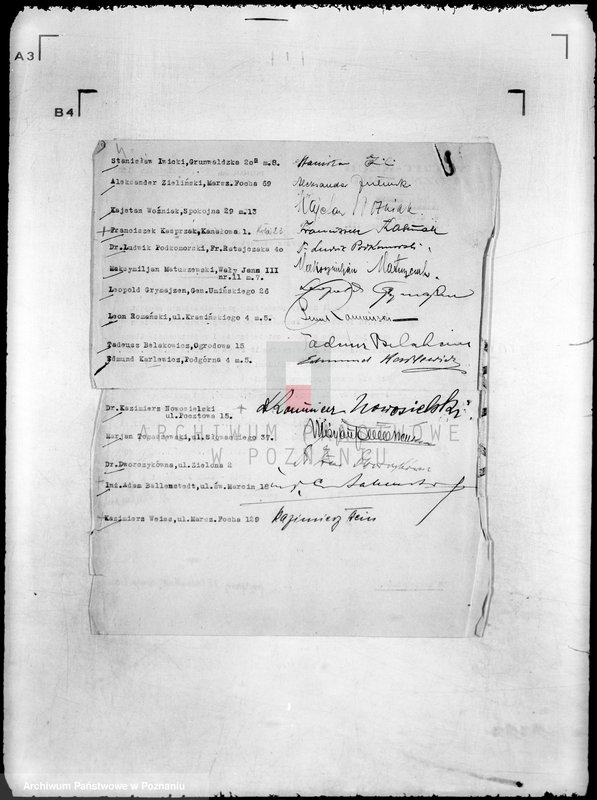 A3
B4
Stanisław Iwicki,Grunwaldzka 20a m.8. Stanisław
Aleksander Zieliński,Marsz.Focha 69 Aleksander Zieliński
Kajetan Woźniak,Spokojna 29 m.13 Kajetan Woźniak
Franciszek Kasprzak,Kanałowa 1. Franciszek
Dr.Ludwik Podkomorski,Fr.Ratajczaka 40 Ludwik Podkomorski
Maksymiljan Matuszewski,Wały Jana III Maksymiljan
nr.11 m.7.
Leopold Grymajzen,Gen.Umińskiego 26 Leopold Grymajzen
Leon Romański,ul.Krasińskiego 4 m.5.
Tadeusz Belakowicz,Ogrodowa 15 Tadeusz
Edmund Karlewicz,Podgórna 4 m.5. Edmund Karlewicz
Dr.Kazimierz Nowosielski Kazimierz Nowosielski
ul.Pocztowa 15.
Marjan Tomaszewski,ul.Słowackiego 37. Marjan
Dr.Dworczykówna,ul.Zielona 2
Inż.Adam Ballenstedt,ul.św.Marcin 18
Kazimierz Weiss,ul.Marsz.Focha 129 Kazimierz
ARCHIWUM PAŃSTWOWE
W POZNANIU
Archiwum Państwowe w Poznaniu